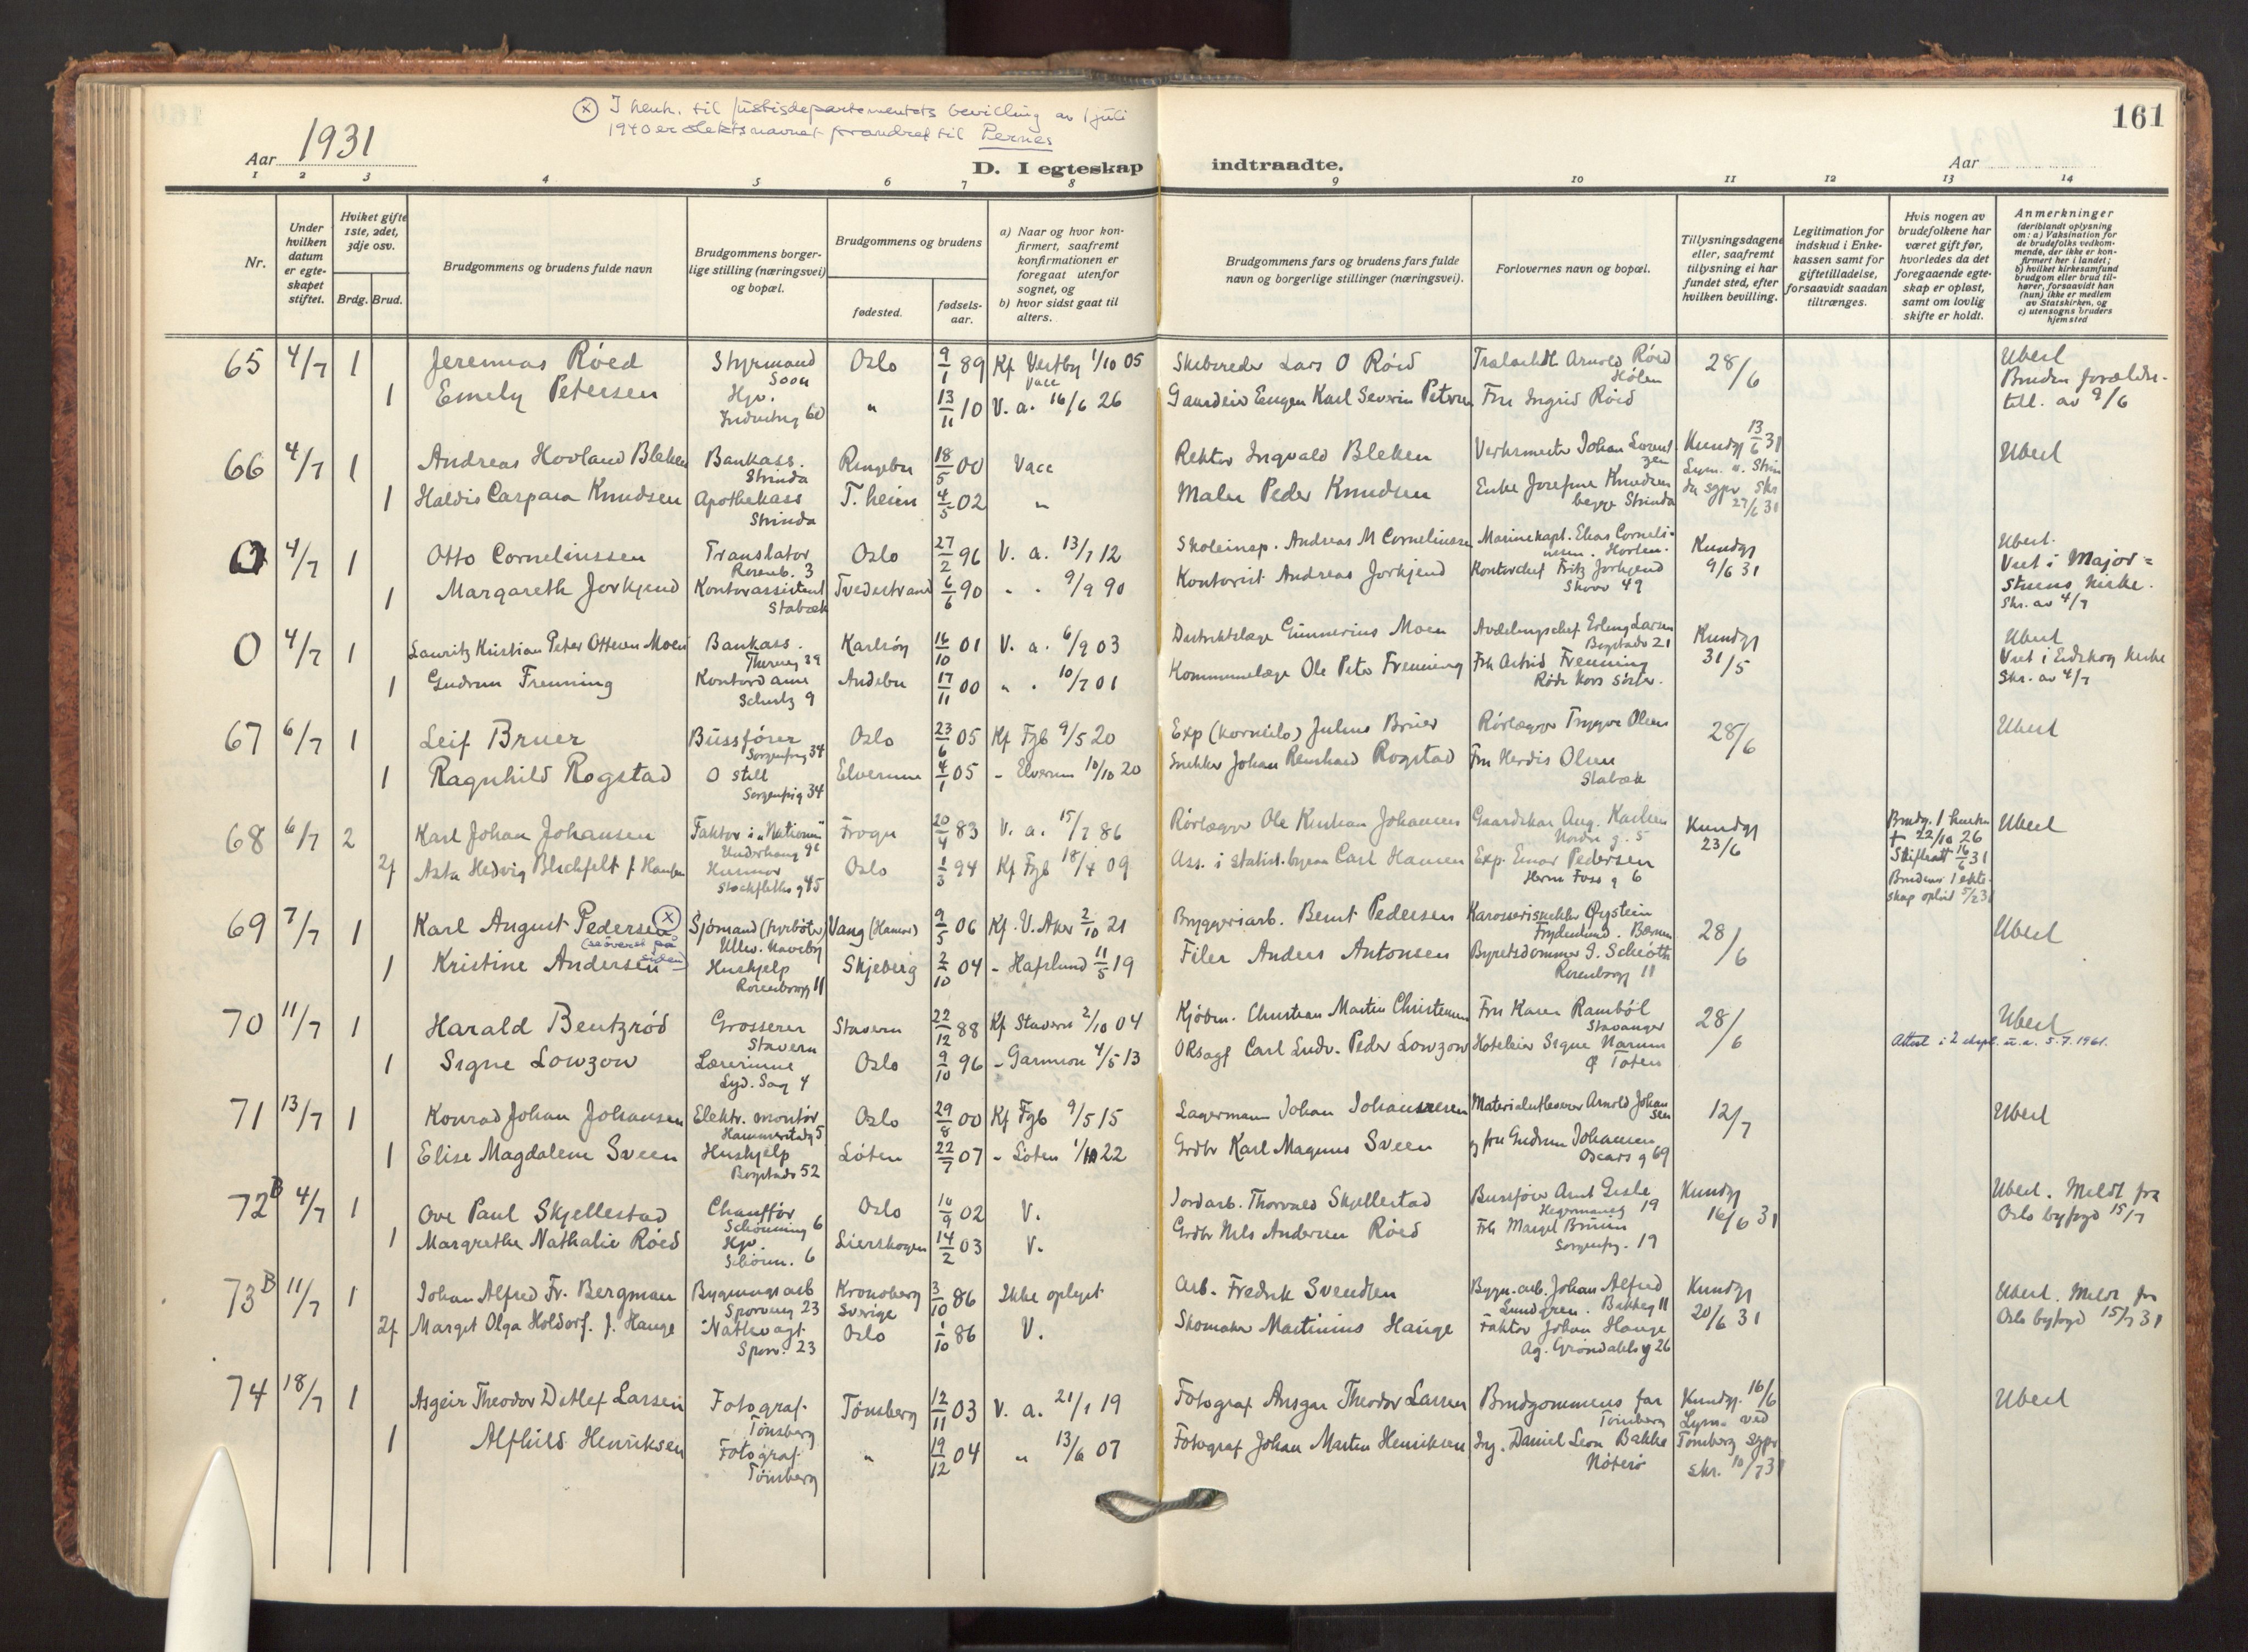 161
(X) I henh. til justisdepartementets bevilling av 1 juli
1940 er slektsnavnet forandret til Pernes
Aar 1931
D. I egteskap indtraadte.
Aar
1 2 3 4 5 6 7 8 9 10 11 12 13 14
Nr.
Under hvilken datum er egteskapet stiftet.
Hviket gifte 1ste, 2det, 3dje osv.
Brdg. Brud.
Brudgommens og brudens fulde navn
Brudgommens borgerlige stilling (næringsvei) og bopæl.
Brudgommens og brudens
fødested.
fødselsaar.
a) Naar og hvor konfirmert, saafremt konfirmationen er foregaat utenfor sognet, og
b) hvor sidst gaat til alters.
Brudgommens fars og brudens fars fulde navn og borgerlige stillinger (næringsvei).
Forlovernes navn og bopæl.
Tillysningsdagene eller, saafremt tillysning ei har fundet sted, efter hvilken bevilling.
Legitimation for indskud i Enkekassen samt for giftetilladelse, forsaavidt saadan tiltrænges.
Hvis nogen av brudefolkene har været gift før, hvorledes da det foregaaende egteskap er opløst, samt om lovlig skifte er holdt.
Anmerkninger
(deriblandt oplysning om: a) Vaksination for de brudefolks vedkommende, der ikke er konfirmert her i landet; b) hvilket kirkesamfund brudgom eller brud tilhører, forsaavidt han (hun) ikke er medlem av Statskirken, og c) utensogns bruders hjemsted
65 4/7 1 Jeremias Röed Styrmand Soon Oslo 9/1 89 Kf Vestby 1/10 05 Vace Skibsreder Lars O Röed Arnold Röed Hölen 28/6 Ubesl
1 Emely Petersen Hjv. Industrig 60 " 13/11 10 V. a. 16/6 26 Gaardeier Eugen Karl Severin Petersen Fru Ingrid Röed Bruden foreldre till. av 9/6
66 4/7 1 Andreas Hovland Bleken Bankass. Strinda Ringebu 18/5 00 Vace Rektor Ingvald Bleken Verksmester Johan Lorentzen Kundgj 13/6 31 Ubesl
1 Haldis Caspara Knudsen Apothekass Strinda T. heim 4/5 02 " Maler Peder Knudsen Enke Josefine Knudsen begge Strinda Lysn. a. Strinda sgpr skr 27/6 31
0 4/7 1 Otto Corneliussen Translator Rosenb. 3 Oslo 27/2 96 V. a. 13/7 12 Skoleinsp. Andreas M Corneliussen Marinekapt. Elias Corneliussen. Horten. Kundgj 9/6 31 Ubesl.
1 Margareth Jorkjend Kontorassistent Stabæk Tvedestrand 6/6 90 " " 9/9 90 Kontorist Andreas Jorkjend Kontorchef Fritz Jorkjend Skovv 49 Viet i Majorstuens kirke. Skr. av 4/7
0 4/7 1 Lauritz Kristian Peter Ottesen Moen Bankass. Karlsöy 16/10 01 V. a. 6/9 03 Distriktslæge Gunnerius Moen Avdelingschef Erling Larsen Bogstadv 21 Kundgj 31/5 Ubesl
1 Gudrun Frenning Kontordame Schultz 9 Andebu 17/11 00 " . 10/7 01 Kommunelæge Ole Peter Frenning Frk Astrid Frenning Röde Kors söster. Viet i Eidskog kirke Skr. av 4/7
67 6/7 1 Leif Bruer Bussförer Sorgenfrig 34 Oslo 23/6 05 Kf Fgb 9/5 20 Exp Julius Bruer Rörlægger Trygve Olsen 28/6 Ubesl
1 Ragnhild Rogstad O still Sorgenfrig 34 Elverum 4/1 05 - Elverum 10/10 20 Snekker Johan Reinhard Rogstad Fru Herdis Olsen Stabæk
68 6/7 2 Karl Johan Johansen Faktor i "Nationen" Underhaug Frogn 20/4 83 V. a. 15/7 86 Rörlægger Ole Kristian Johansen Gaardskar Aug. Karlsen Nordre g. 5 Kundgj 23/6 Brudg. 1 hustru + 22/10 26 Skifteatt 16/6 31 Ubesl
2f Asta Hedvig Blichfelt f Hansen Husmor Stockfleths g 45 Oslo 1/3 94 Kf Fgb 18/4 09 Ass. i Statist. byraa Carl Hansen Exp. Einar Pedersen Herm Foss g 6 Brudens 1 ekteskap oplöst 5/2 31
69 7/7 1 Karl August Pedersen (X) (se överst på siden) Sjömand (fyrböter) Ullev. Haveby Vang (Hamar) 9/5 06 Kf. V. Aker 2/10 21 Bryggeriarb. Bernt Pedersen Karosserisnekker Öystein Frydenlund. Bærum 28/6 Ubesl
1 Kristine Andersen Hushjelp Rosenborgg 11 Skjeberg 2/10 04 - Hafslund 11/5 19 Filer Anders Antonsen Byretsdommer S. Schiöth Rosenborgg 11
70 11/7 1 Harald Bentzröd Grosserer Stavern Stavern 22/12 88 Kf Stavern 2/10 04 Kjöbm. Christian Martin Christensen Fru Karen Ramböl Stavanger 28/6 Ubesl
1 Signe Lowzow Lærerinne Lyd. Sag 4 Oslo 9/10 96 - Garnison 4/5 13 ORsagf Carl Ludv. Peder Lowzow Hoteleier Signe Narum Ö Toten Attest i 2 expl. u.a. 5.7.1961.
71 13/7 1 Konrad Johan Johansen Elektr. montör Hammerstadg 5 Oslo 29/8 00 Kf Fgb 9/5 15 Lagermann Johan Johannesen Materialutleverer Arnold Johansen 12/7 Ubesl
1 Elise Magdalene Sveen Hushjelp Bogstadv 52 Löten 22/7 07 - Löten 1/10 22 Grdbr Karl Magnus Sveen g fru Gudrun Johansen Oscars g 69
72 B 4/7 1 Ove Paul Skjellestad Chaufför Schönning 6 Oslo 10/9 02 V. Jordarb. Thorvald Skjellestad Bussförer Arnt Gisle Hegermansg 19 Kundgj 16/6 31 Ubesl. Meldt fra Oslo byfogd 15/7
1 Margrethe Nathalie Röed Hjv. Schönn. 6 Lierskogen 14/2 03 V. Grdbr Nils Andersen Röed Frk Margit Bruun Sorgenfrg. 19
73 B 11/7 1 Johan Alfred Fr. Bergman Bygningsarb Sporveisg 23 Kronoberg Sverige 3/10 86 Ikke oplyst Arb. Fredrik Svendsen Bygn. arb. Johan Alfred Lundgren. Bakkeg 11 Kundgj 20/6 31 Ubesl. Meldt fra Oslo byfogd 15/7 31
2f Margit Olga Holdorf. f. Hauge Nattevagt Sporv. 23 Oslo 1/10 86 V. Skomaker Martinius Hauge Faktor Johan Hauge Ag. Gröndahls g 26
74 18/7 1 Asgeir Theodor Detlef Larsen Fotograf. Tönsberg Tönsberg 12/11 03 V. a. 21/1 19 Fotograf Ansgar Theodor Larsen Brudgommens far Tönsberg Kundgj. 16/6 Ubesl
1 Alfhild Henriksen Fotograf Tönsberg " 19/12 04 " 13/6 07 Fotograf Johan Martin Henriksen Ing. Daniel Leon Bakke Nöterö Lysn. ved Tönsberg sgpr skr. 10/7 31